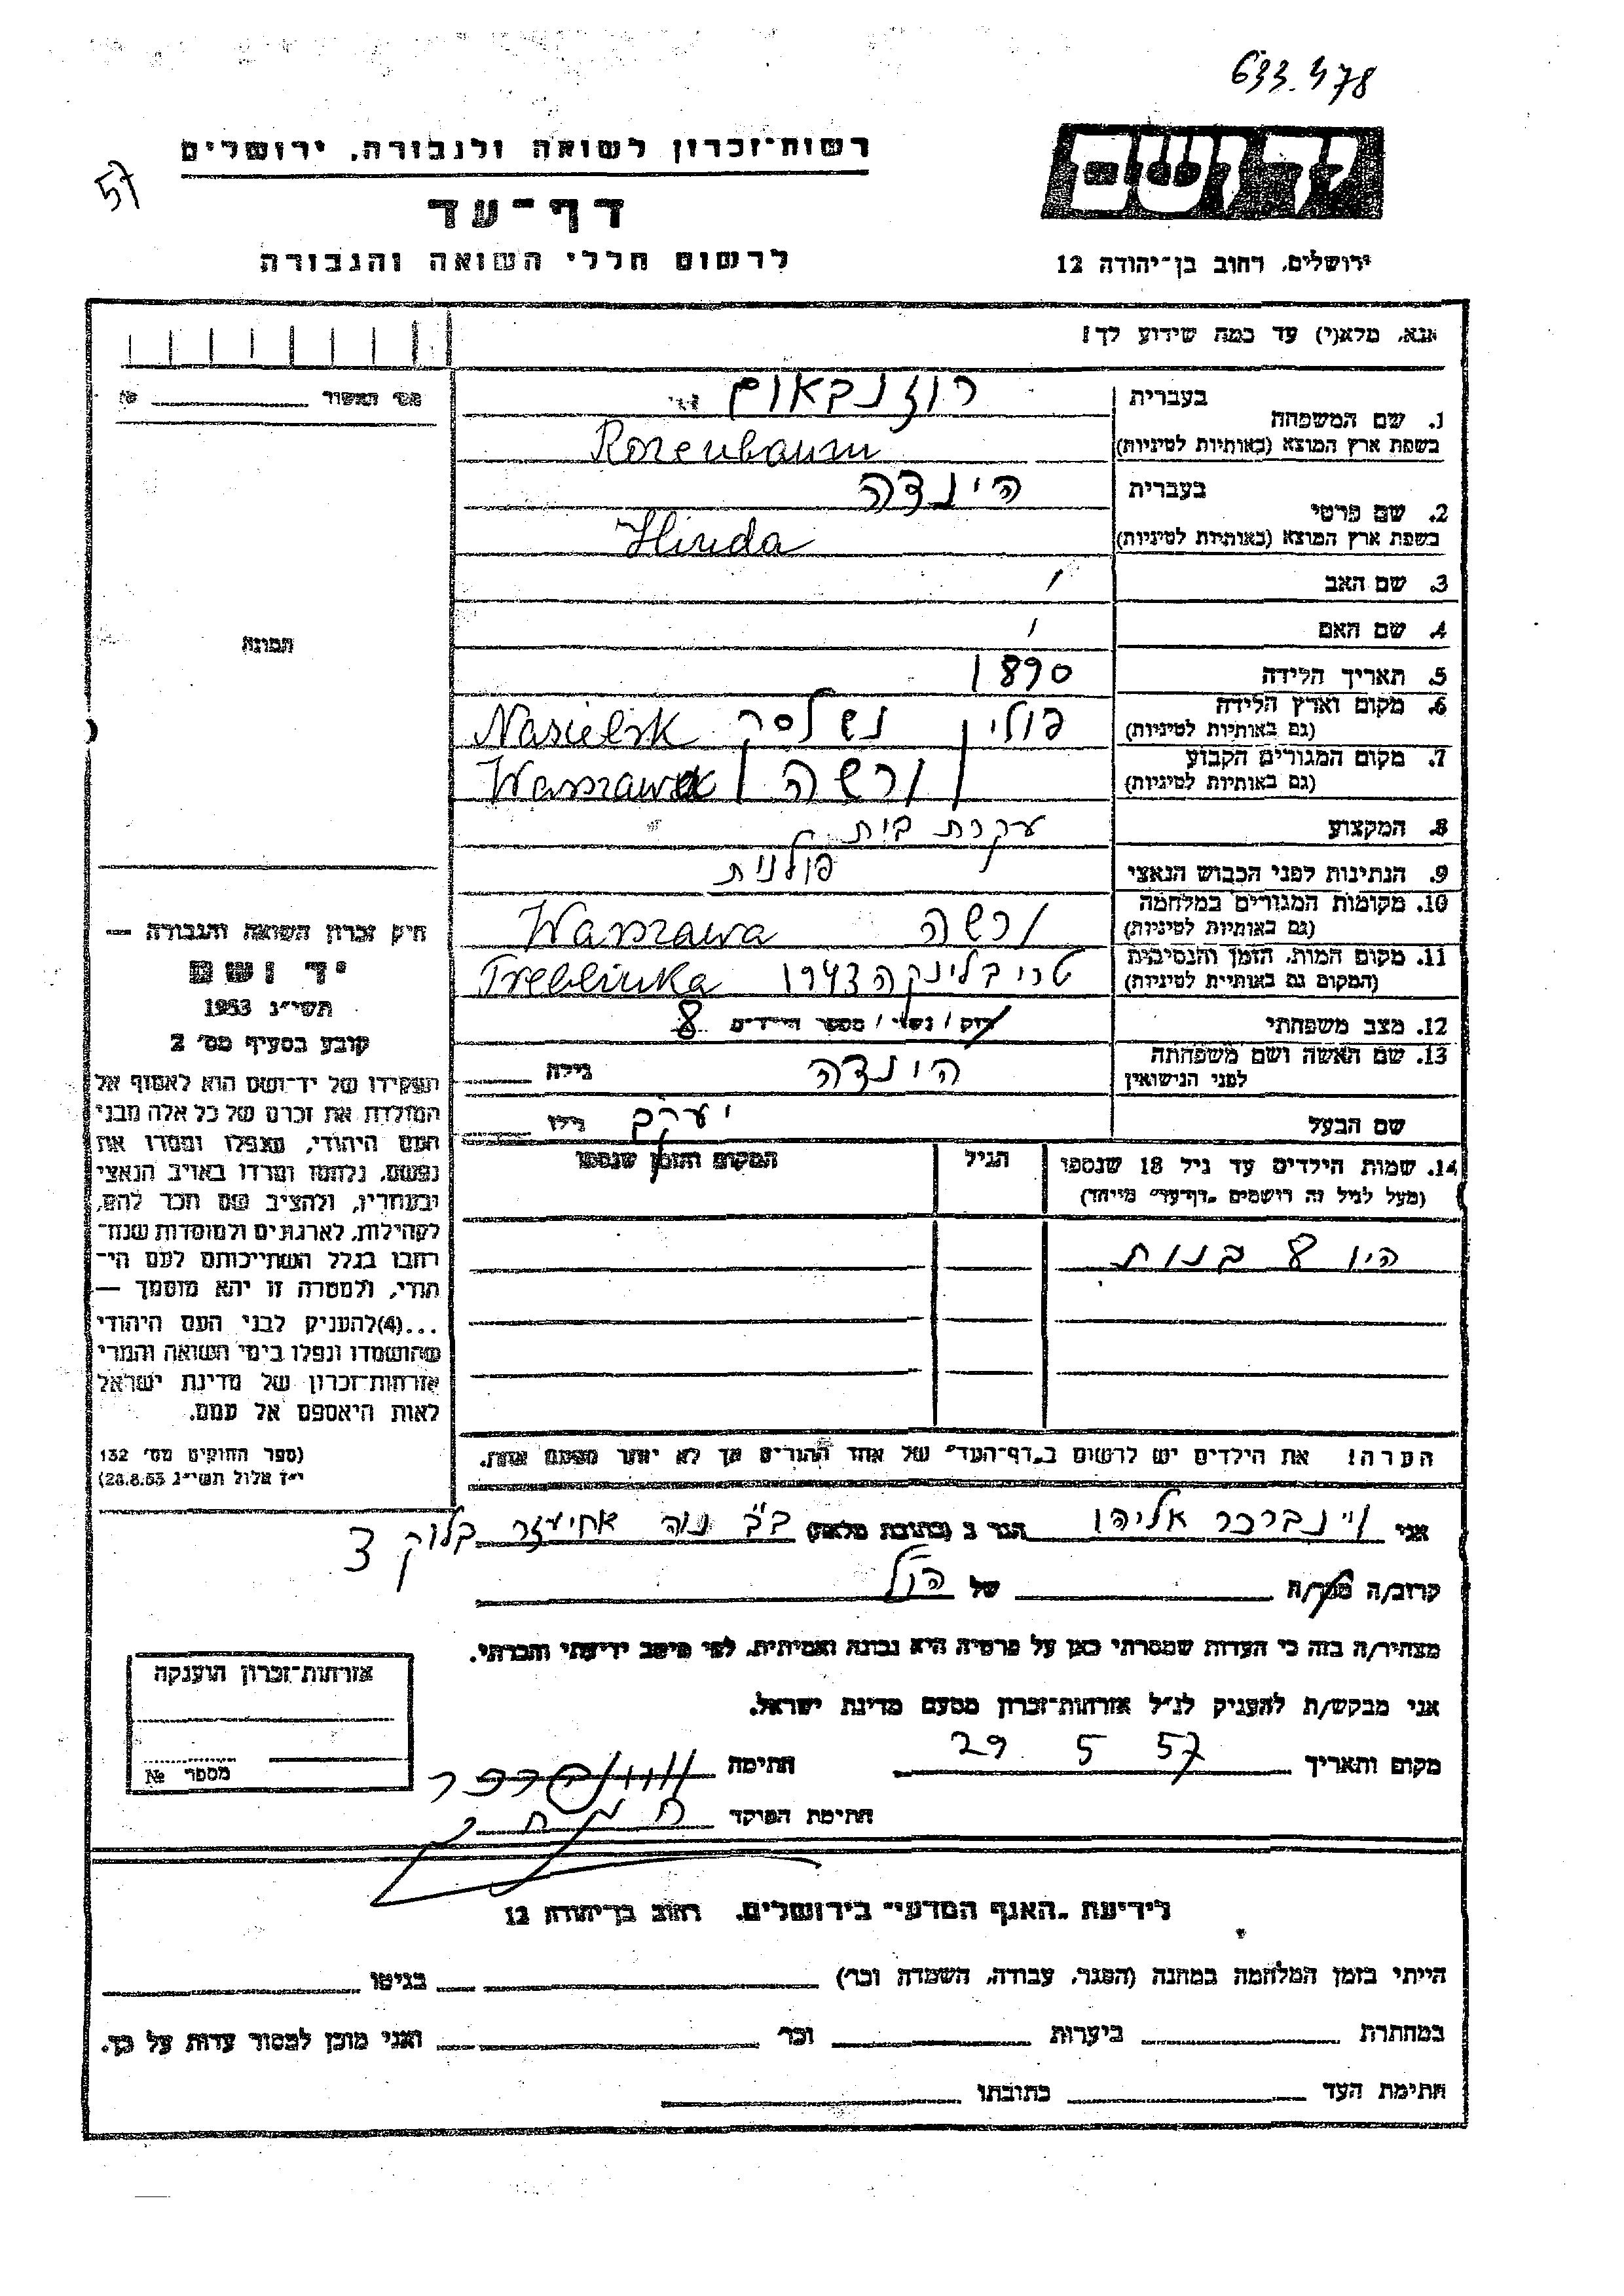 633.478
57
רשות־זכרון לשואה ולגבורה, ירושלים
יד ושם
דף־עד
לרשום חללי השואה והגבורה
ירושלים, רחוב בן־יהודה 12
אנא, מלא(י) עד כמה שידוע לך!
מס׳ האשור №
1. שם המשפחה בעברית רוזנבאום
בשפת ארץ המוצא (באותיות לטיניות) Rozenbaum
2. שם פרטי בעברית הינדה
בשפת ארץ המוצא (באותיות לטיניות) Hinda
3. שם האב
4. שם האם
תמונה
5. תאריך הלידה 1890
6. מקום וארץ הלידה (גם באותיות לטיניות) פולין נשלסק Nasielsk
7. מקום המגורים הקבוע (גם באותיות לטיניות) ורשה Warszawa
8. המקצוע עקרת בית
9. הנתינות לפני הכבוש הנאצי פולנית
10. מקומות המגורים במלחמה (גם באותיות לטיניות) ורשה Warszawa
11. מקום המות, הזמן והנסיבות (המקום גם באותיות לטיניות) טרבלינקה 1943 Treblinka
12. מצב משפחתי רוק / נשוי / מספר הילדים 8
13. שם האשה ושם משפחתה לפני הנישואין הינדה גילה
שם הבעל יעקב גילו
14. שמות הילדים עד גיל 18 שנספו הגיל המקום והזמן שנספו
(מעל לגיל זה רושמים „דף־עד״ מיוחד)
היו 8 בנות
הערה! את הילדים יש לרשום ב„דף־העד״ של אחד ההורים אך לא יותר מפעם אחת.
חוק זכרון השואה והגבורה —
יד ושם
תשי״ג 1953
קובע בסעיף מס׳ 2
תפקידו של יד־ושם הוא לאסוף אל
המולדת את זכרם של כל אלה מבני
העם היהודי, שנפלו ומסרו את
נפשם, נלחמו ומרדו באויב הנאצי
ובעוזריו, ולהציב שם וזכר להם,
לקהילות, לארגונים ולמוסדות שנח־
רבו בגלל השתייכותם לעם הי־
הודי, ולמטרה זו יהא מוסמך —
...(4)להעניק לבני העם היהודי
שהושמדו ונפלו בימי השואה והמרי
אזרחות־זכרון של מדינת ישראל
לאות היאספם אל עמם.
(ספר החוקים מס׳ 132
י״ז אלול תשי״ג 28.8.53)
אני ויינברגר אליהו הגר ב (כתובת מלאה) ב״ב נוה אחיעזר בלוק 3
קרוב/ה מכר/ה של הנ״ל
מצהיר/ה בזה כי העדות שמסרתי כאן על פרטיה היא נכונה ואמיתית, לפי מיטב ידיעתי והכרתי.
אני מבקש/ת להעניק לנ״ל אזרחות־זכרון מטעם מדינת ישראל.
מקום ותאריך 29 5 57 חתימה
חתימת הפוקד
אזרחות־זכרון הוענקה
מספר №
לידיעת „האגף המדעי״ בירושלים, רחוב בן־יהודה 12
הייתי בזמן המלחמה במחנה (הסגר, עבודה, השמדה וכו׳) בגיטו
במחתרת ביערות וכו׳ ואני מוכן למסור עדות על כך.
חתימת העד כתובתו